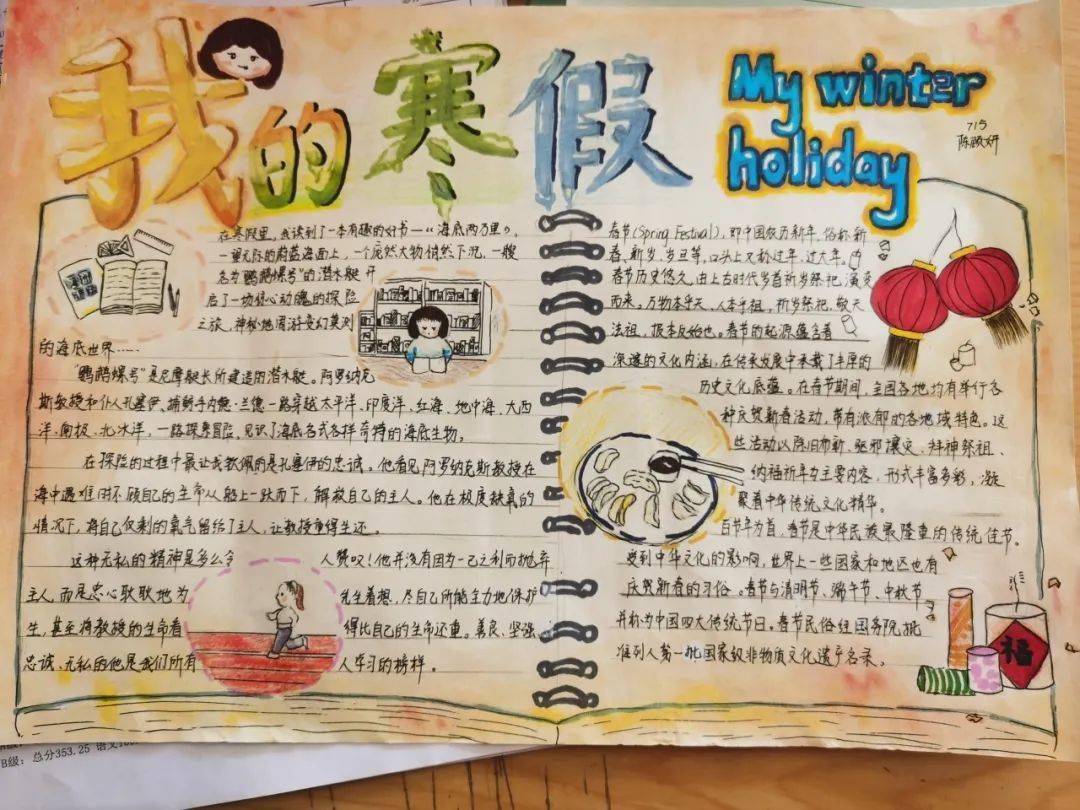 我的寒假
My winter
holiday
715
陈颐妍
在寒假里，我读到了一本有趣的好书—《海底两万里》，
一望无际的蔚蓝海面上，一个庞然大物悄然下沉，一艘
名为"鹦鹉螺号"的潜水艇 开
启了一场惊心动魄的探险
之旅，神秘地漫游变幻莫测
的海底世界……
"鹦鹉螺号"是尼摩艇长所建造的潜水艇。阿罗纳克
斯教授和仆人孔塞伊、捕鲸手内德·兰德一路穿越太平洋、印度洋、红海、地中海、大西
洋、南极、北冰洋，一路探索冒险，见识了海底各式各样奇特的海底生物。
在探险的过程中最让我敬佩的是孔塞伊的忠诚。他看见阿罗纳克斯教授在
海中遇难时不顾自己的生命从船上一跃而下，解救自己的主人。他在极度缺氧的
情况下，将自己仅剩的氧气留给了主人，让教授重得生还。
这种无私的精神是多么令 人赞叹！他并没有因为一己之利而抛弃
主人，而是忠心耿耿地为 先生着想，尽自己所能全力地保护
生，甚至将教授的生命看 得比自己的生命还重。善良、坚强、
忠诚、无私的他是我们所有 人学习的榜样。
春节(Spring Festival)，即中国农历新年，俗称新
春、新岁、岁旦等，口头上又称过年、过大年。
春节历史悠久，由上古时代岁首祈岁祭祀演变
而来。万物本乎天、人本乎祖，祈岁祭祀、敬天
法祖，报本反始也。春节的起源蕴含着
深邃的文化内涵，在传承发展中承载了丰厚的
历史文化底蕴。在春节期间，全国各地均有举行各
种庆贺新春活动，带有浓郁的各地域特色。这
些活动以除旧布新、驱邪攘灾、拜神祭祖、
纳福祈年为主要内容，形式丰富多彩，凝
聚着中华传统文化精华。
百节年为首，春节是中华民族最隆重的传统佳节。
受到中华文化的影响，世界上一些国家和地区也有
庆贺新春的习俗。春节与清明节、端午节、中秋节
并称为中国四大传统节日。春节民俗经国务院批
准列入第一批国家级非物质文化遗产名录。
福
B级：总分353.25 语文